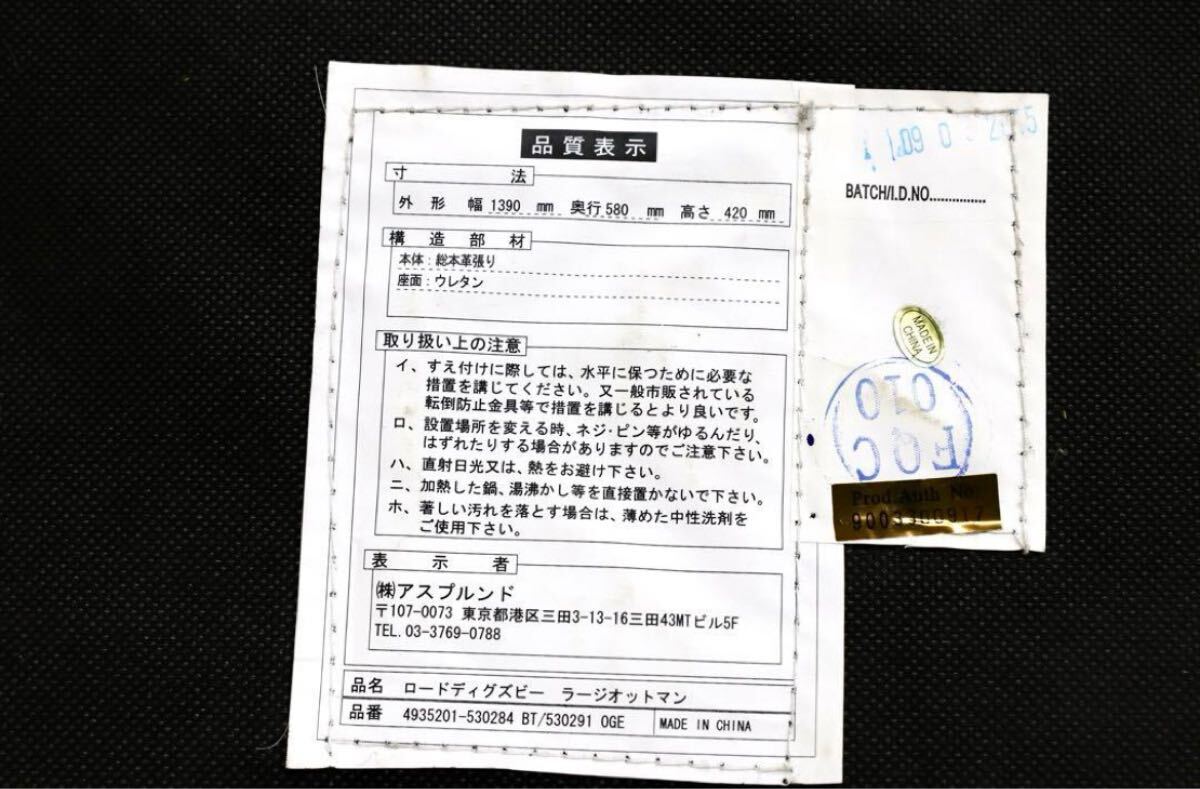 品質表示
寸法
外形 幅 1390 mm 奥行 580 mm 高さ 420 mm
構造部材
本体:総本革張り
座面:ウレタン
取り扱い上の注意
イ、すえ付けに際しては、水平に保つために必要な
措置を講じてください。又一般市販されている
転倒防止金具等で措置を講じるとより良いです。
ロ、設置場所を変える時、ネジ・ピン等がゆるんだり、
はずれたりする場合がありますのでご注意下さい。
ハ、直射日光又は、熱をお避け下さい。
ニ、加熱した鍋、湯沸かし等を直接置かないで下さい。
ホ、著しい汚れを落とす場合は、薄めた中性洗剤を
ご使用下さい。
表示者
㈱アスプルンド
〒107-0073 東京都港区三田3-13-16三田43MTビル5F
TEL.03-3769-0788
品名 ロードディグズビー ラージオットマン
品番 4935201-530284 BT/530291 OGE MADE IN CHINA
BATCH/I.D.NO...............
MADE IN
CHINA
010
FQC
Prod.Auth No.